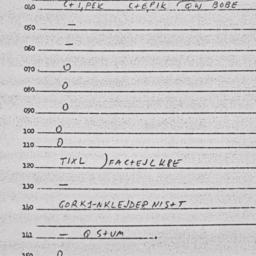 040 C+1,PEK C+EPIK QW BOBE
050 —
060 —
070 O
080 O
090 O
100 O
110 O
120 TIXL )FAC+EJLKPE
130 —
140 GORKJ-NKLEJDEP NIS+T
141 — Q S+UM .
150 O